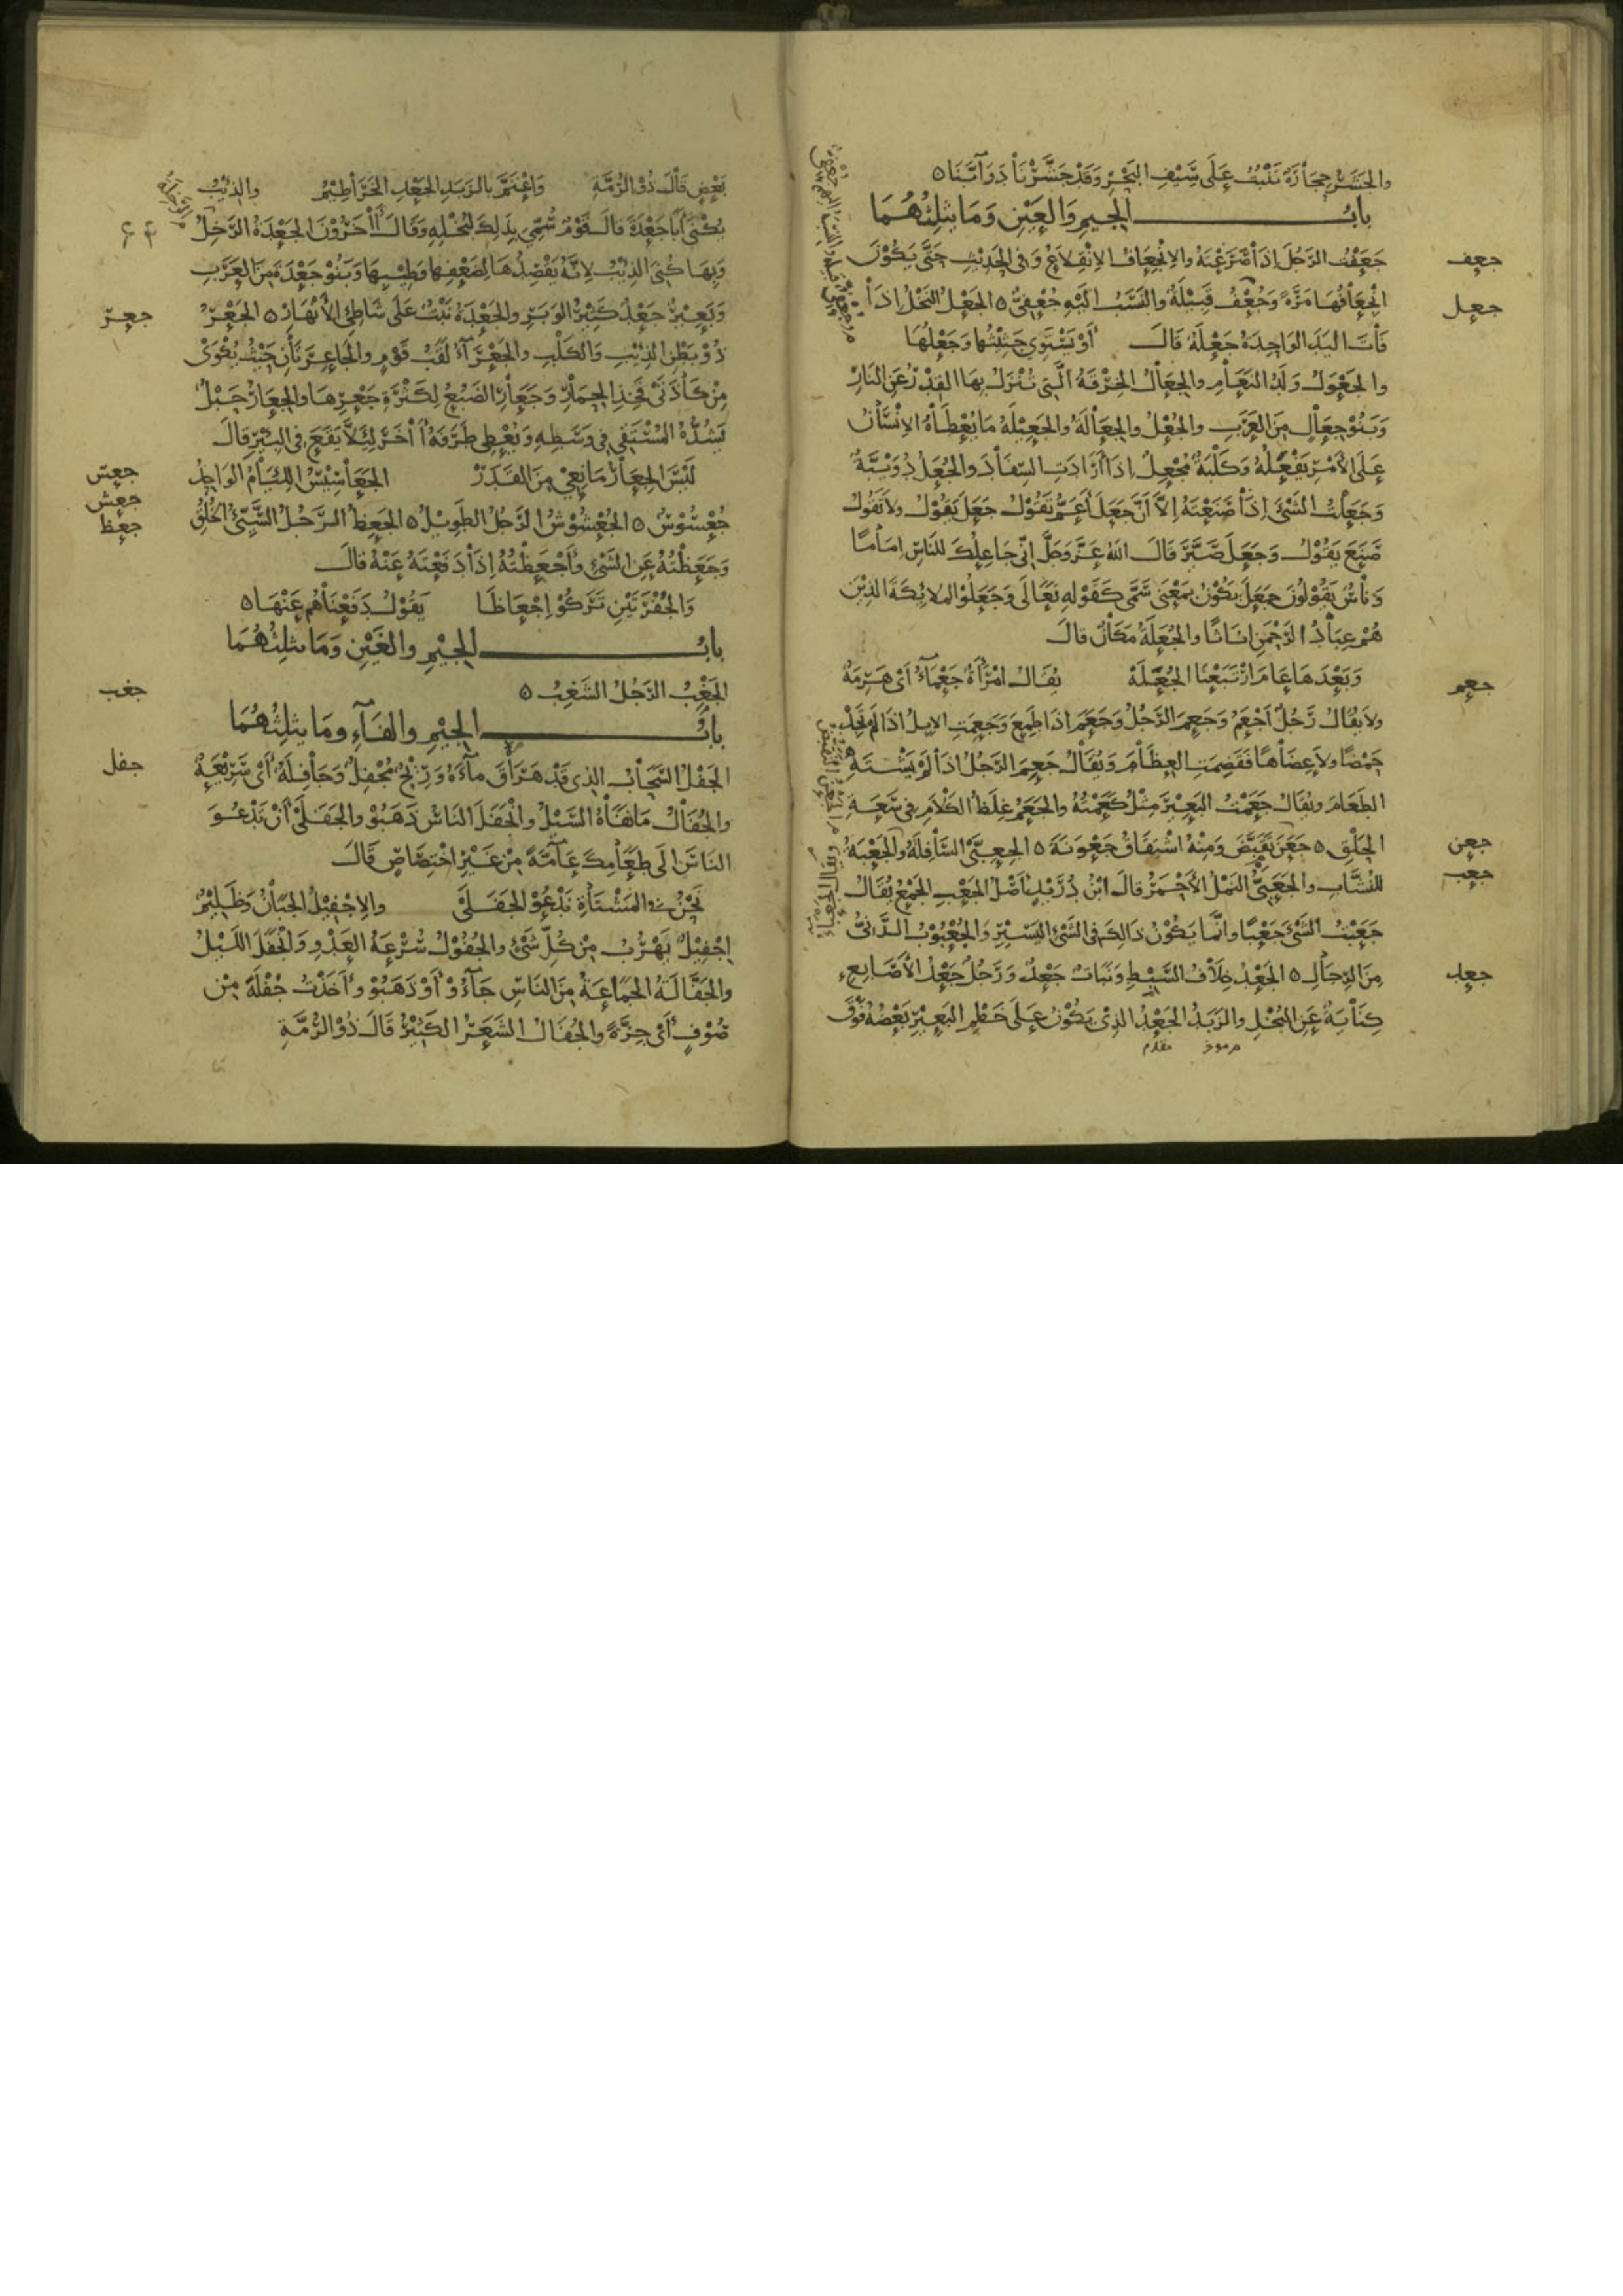 والجَشَرُ حِجَارَةٌ تَنْبُتُ عَلَى سِيْفِ البَحْرِ وَقَدْ جَشَرْنَا دَوَابَّنَا ه
بابُ الجيمِ وَالعَيْنِ وَمَا يثلِثُهُمَا
جعف
جَعَفْتُ الرَّجُلَ اذَا صَرَعْتَهُ والانْجِعَافُ الانْقِلَاعُ وَفى الحَدِيْثِ حَتَّى يَكُوْنَ
جعل
انْجِعَافُهَا مَرَّةً وَجُعْفُ قَبِيْلَةٌ والنَّسَبُ الَيْهِ جُعْفِىٌّ ه الجَعْلُ النَخْلُ اذَا
فَاتَ اليَدَ الوَاحِدَةُ جَعْلَةٌ قَالَ أوْ يَسْتَوِي جَثِيْثُهَا وَجَعْلُهَا
والجَعْوَلُ وَلَدُ النَعَامِ والجِعَالُ الخِرْقَةُ الَّتِى تُنْزَلُ بِهَا القِدْرُ عَنِ النَارِ
وَبَنُوْ جِعَالٍ مِنَ العَرَبِ والجُعْلُ والجِعَالَةُ والجَعِيْلَةُ مَا يُعْطَاهُ الاِنْسَانُ
عَلَى الأَمْرِ يَفْعَلُهُ وَكَلْبَةٌ مُجْعِلٌ اِذَا أرَادَتِ السِّفَادَ والجُعَلُ دُوَيْبَّةٌ
وَجَعَلْتُ الشَىْءَ اِذَا صَنَعْتَهُ اِلاَّ اَنَّ جَعَلَ أعَمُّ تَقُوْلُ جَعَلَ يَقُوْلُ وَلاَ تَقُولُ
صَنَعَ يَقُوْلُ وَجَعَلَ صَيَّرَ قَالَ اللهُ عَزَّوَجَلَّ اِنِّى جَاعِلُكَ لِلنَاسِ اِمَامًا
وَنَاسٌ يَقُوْلُونَ جَعَلَ يَكُوْنُ بِمَعْنَى سَمَّى كَقَوْلِهِ تَعَالَى وَجَعَلُوْا المَلائِكَةَ الذِيْنَ
هُمْ عِبَادُ الرَّحْمَنِ اِنَاثًا والجُعَلَةُ مَكَانٌ قالَ
جعم
وَبَعْدَهَا عَامَ ارْتَبَعْنَا الجُعَلَهْ يُقَالُ امْرَأةٌ جَعْمَاءُ اَىْ هَرِمَةٌ
ولاَ يُقَالُ رَجُلٌ اَجْعَمُ وَجَعِمَ الرَّجُلُ وَجَعَمَ اذَا طَمِعَ وَجَعِمَتِ الاِبِلُ اذَا لَمْ تَجِدْ
حَمْضًا ولاَ عِضَاهًا فَقَضِمَتِ العِظَامَ وَيُقَالُ جَعِمَ الرَّجُلُ اذَا لَمْ يَشْتَهِ
الطَعَامَ ويُقَالُ جَعَمْتُ البَعِيْرَ مِثْلُ كَعَمْتُهُ والجَعَمُ غِلَظُ الكَلَامِ فى سَعَةِ
جعن
الحَلْقِ ه جَعَنَ تَقَبَّضَ وَمِنْهُ اشْتِقَاقُ جَعْوَنَةَ ه الجِعِبَّى السَافِلَةُ والجَعْبَةُ
جعب
لِلنُشَّابِ والجَعَبِىُّ النَمْلُ الأحْمَرُ قالَ ابْنُ دُرَيْدٍ اَصْلُ الجَعْبِ الجَمْعُ يُقَالُ
جَعَبْتُ الشَىْءَ جَعْبًا وانَّمَا يَكُوْنُ ذَالِكَ فى الشَىْءِ اليَسِيْرِ وَالجُعْبُوْبُ الدَّنِىُّ
جعد
مِنَ الرِجَالِ ه الجَعْدُ خِلاَفُ السَّبِطِ وَنَبَاتٌ جَعْدٌ وَرَجُلٌ جَعْدُ الأصَابِعِ
كِنَايَةٌ عَنِ البُخْلِ والزَبَدُ الجَعْدُ الذِىْ يَكُوْنُ عَلَى خَطْمِ البَعِيْرِ بَعْضُهُ فَوْقَ
مؤخر مقدم
بَعْضٍ قَالَ ذُوْ الرُمَّةِ وَاعْتَمَّ بالزَبَدِ الجَعْدِ الخَرَاطِيْمُ والذِئْبُ
يُكْنَى اَبَا جَعْدَةَ قَالَ قَوْمٌ سُمِّىَ بِذَلِكَ لِبُخْلِهِ وَقَالَ اَاخَرُوْنَ الجَعْدَةُ الرَخِلُ
وَبِهَا كُنِىَ الذِئْبُ لاِنَّهُ يَقْصِدُهَا لِضَعْفِهَا وَطِيْبِهَا وَبَنُوْ جَعْدَةَ مِنَ العَرَبِ
جعر
وَبَعِيْرٌ جَعْدٌ كَثِيْرُ الوَبَرِ والجَعْدَةُ نَبْتٌ عَلَى شَاطِئِ الأنْهَارِ ه الجَعْرُ
ذُوْ بَطْنِ الذِئْبِ وَالكَلْبِ والجَعْرَاءُ لَقَبُ قَوْمٍ والجَاعِرَتَانِ حَيْثُ يُكْوَىْ
مِنْ كَاذَتَىْ فَخِذِ الحِمَارِ وَجَعَارِ الضَبُعُ لِكَثْرَةِ جَعْرِهَا والجِعَارُ حَبْلٌ
يَشُدُّهُ المُسْتَقِي فى وَسَطِهِ وَيُعْطِي طَرَفَهُ أاخَرَ لِئَلاَّ يَقَعَ فى البِئْرِ قالَ
جعس
لَيْسَ الجِعَارُ مَانِعِيْ مِنَ القَدَرْ الجَعَاسِيْسُ اللِئَامُ الوَاحِدُ
جعش
جعظ
جُعْسُوْسٌ ه الجُعْشُوْشُ الرَّجُلُ الطَوِيْلُ ه الجَعِظُ الرَّجُلُ السَّيِّئُ الخُلُقِ
وَجَعَظْتُهُ عَنِ الشَىْءِ وأَجْعَظْتُهُ اِذَا دَفَعْتَهُ عَنْهُ قَالَ
وَالجُفْرَتَيْنِ تَرَكُوْا اِجْعَاظَا يَقُوْلُ دَفَعْنَاهُم عَنْهَا ه
بابُ الجيْمِ والغَيْنِ وَمَا يثلِثُهُمَا
جغب
الجَغِبُ الرَجُلُ الشَغِبُ ه
بابُ الجيْمِ والفَآءِ ومَا يثلِثُهُمَا
جفل
الجَفْلُ السَّحَابُ الذِي قَدْ هَرَاقَ مآءَهُ وَرِيْحٌ مُجْفِلٌ وَجَافِلَةٌ أَىْ سَرِيْعَةٌ
والجُفَالُ مَا نَفَاهُ السَّيْلُ وانْجَفَلَ النَاسُ ذَهَبُوْ والجَفَلَىْ أنْ تَدْعُوَ
النَاسَ الَى طَعَامِكَ عَآمَّةً مِنْ غَيْرِ اخْتِصَاصٍ قَالَ
نَحْنُ فى المَشْتَاةِ نَدْعُوْ الجَفَلَىْ والاِجْفِيْلُ الجَبَانُ وَظَلِيْمٌ
اِجْفِيْلٌ يَهْرُبُ مِنْ كُلِّ شَىْءٍ والجُفُوْلُ سُرْعَةُ العَدْوِ وَانْجَفَلَ اللَيْلُ
والجَفَّالَةُ الجَمَاعَةُ مِنَ النَاسِ جَآءُوْ أوْ ذَهَبُوْ وأَخَذْتُ جُفْلَةً مِنْ
صُوْفٍ أَىْ جِزَّةً والجُفَالُ الشَعَرُ الكَثِيْرُ قَالَ ذُوْ الرُمَّةِ